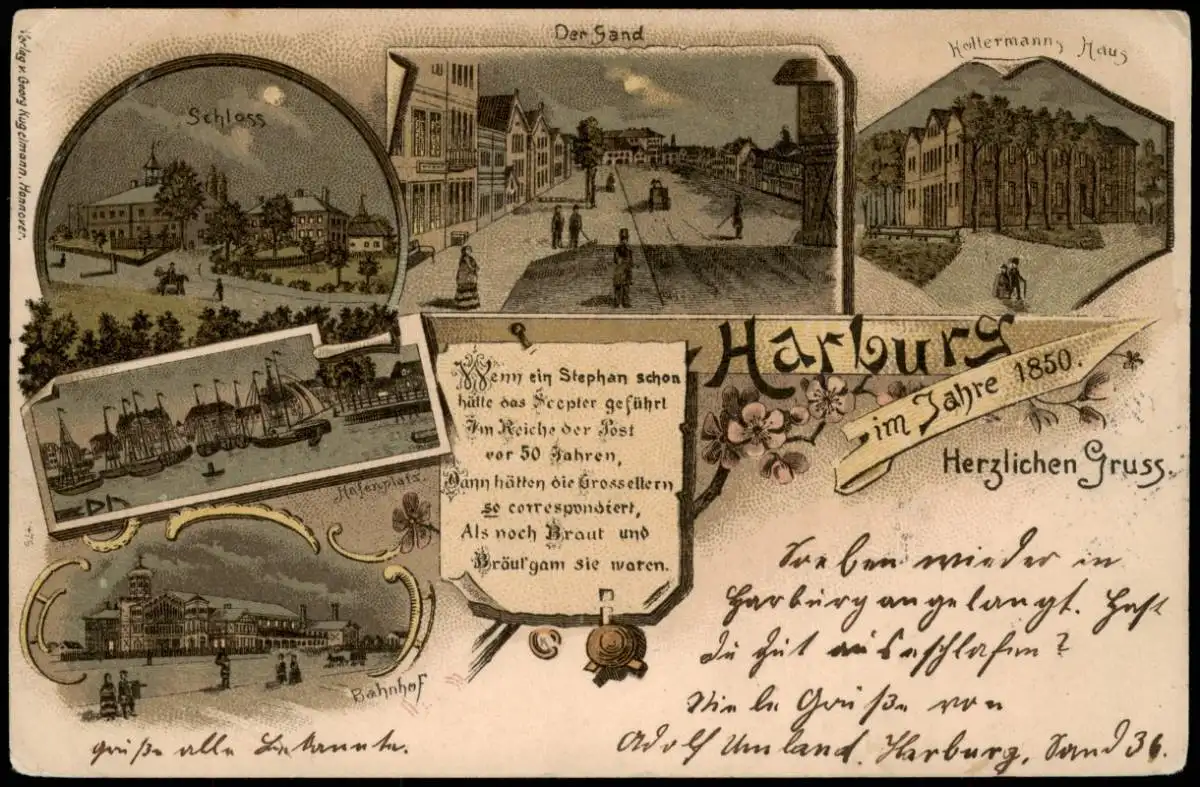 Der Sand
Holtermanns Haus
Schloss
Verlag v. Georg Kugelmann, Hannover.
Harburg
im Jahre 1850.
Herzlichen Gruss.
Wenn ein Stephan schon
hätte das Scepter geführt
Im Reiche der Post
vor 50 Jahren,
Dann hätten die Grosseltern
so correspondiert,
Als noch Braut und
Bräut'gam sie waren.
Hafenplatz
Bahnhof
Soeben wieder in
Harburg angelangt. Hast
du gut ausgeschlafen?
Viele Grüße von
Adolf Umland, Harburg, Sand 36.
grüße alle Bekannte.